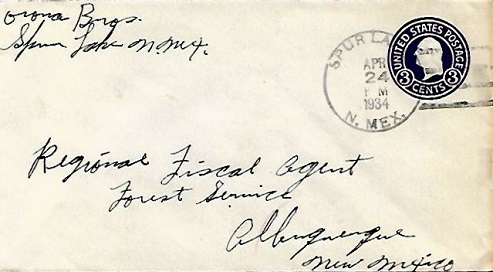 orona Bros.
Spur Lake N. Mex.
SPUR LA
APR
24
PM
1934
N. MEX.
UNITED STATES POSTAGE
3 CENTS 3
Regional Fiscal Agent
Forest Service
Albuquerque
New Mexico